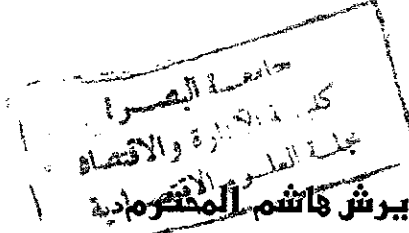 جامعة البصرة
كلية الادارة والاقتصاد
مجلة العلوم الاقتصادية
هاشم المحترم